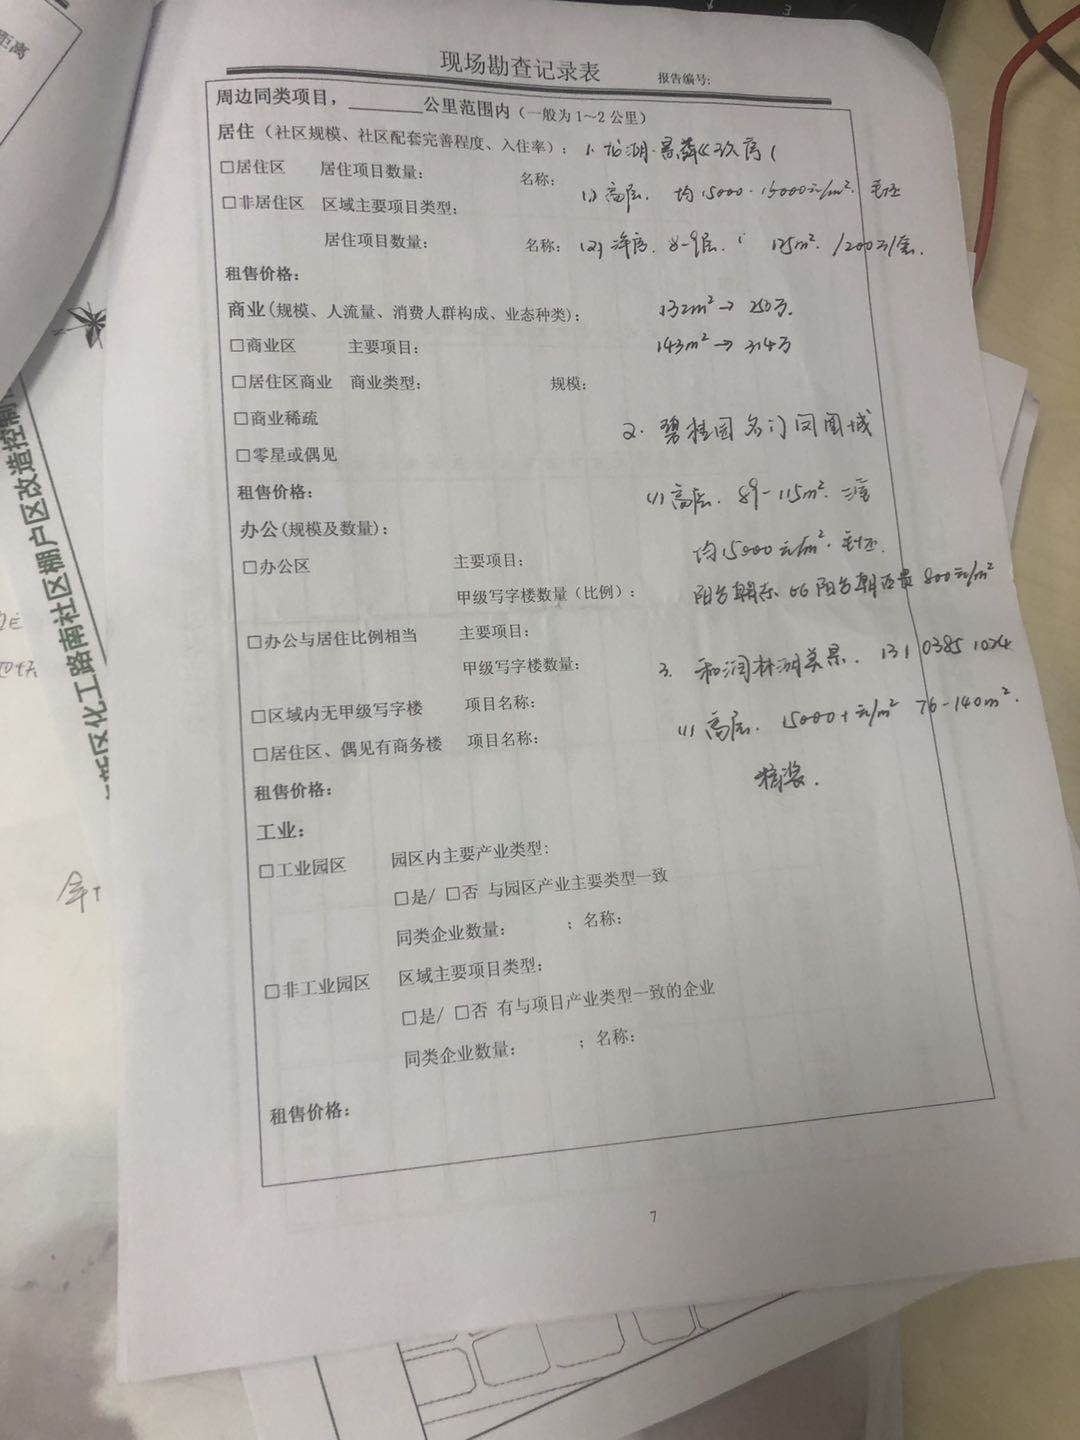 距离
现场勘查记录表 报告编号:
周边同类项目，______公里范围内（一般为1~2公里）
居住（社区规模、社区配套完善程度、入住率）： 1. 龙湖·景粼
□居住区 居住项目数量： 名称： (1) 高层. 均15000-15000元/m². 毛坯
□非居住区 区域主要项目类型：
居住项目数量： 名称： (2) 洋房. 8-9层. 125m². /200万/套.
租售价格：
商业(规模、人流量、消费人群构成、业态种类)： 132m²→250万.
□商业区 主要项目： 143m²→314万
□居住区商业 商业类型： 规模：
□商业稀疏 2. 碧桂园名门凤凰城
□零星或偶见
租售价格： (1) 高层. 89-115m².
办公(规模及数量)：
□办公区 主要项目： 均15000元/m². 毛坯.
甲级写字楼数量（比例）： 阳台朝东 比阳台朝西贵800元/m²
□办公与居住比例相当 主要项目：
甲级写字楼数量： 3. 和润林湖美景. 131 0385 1024
□区域内无甲级写字楼 项目名称： (1) 高层. 15000+元/m² 76-140m².
□居住区、偶见有商务楼 项目名称：
精装.
租售价格：
工业：
□工业园区 园区内主要产业类型:
□是/ □否 与园区产业主要类型一致
同类企业数量： ；名称：
□非工业园区 区域主要项目类型：
□是/ □否 有与项目产业类型一致的企业
同类企业数量： ；名称：
租售价格：
7
区化工路南社区棚户区改造控制